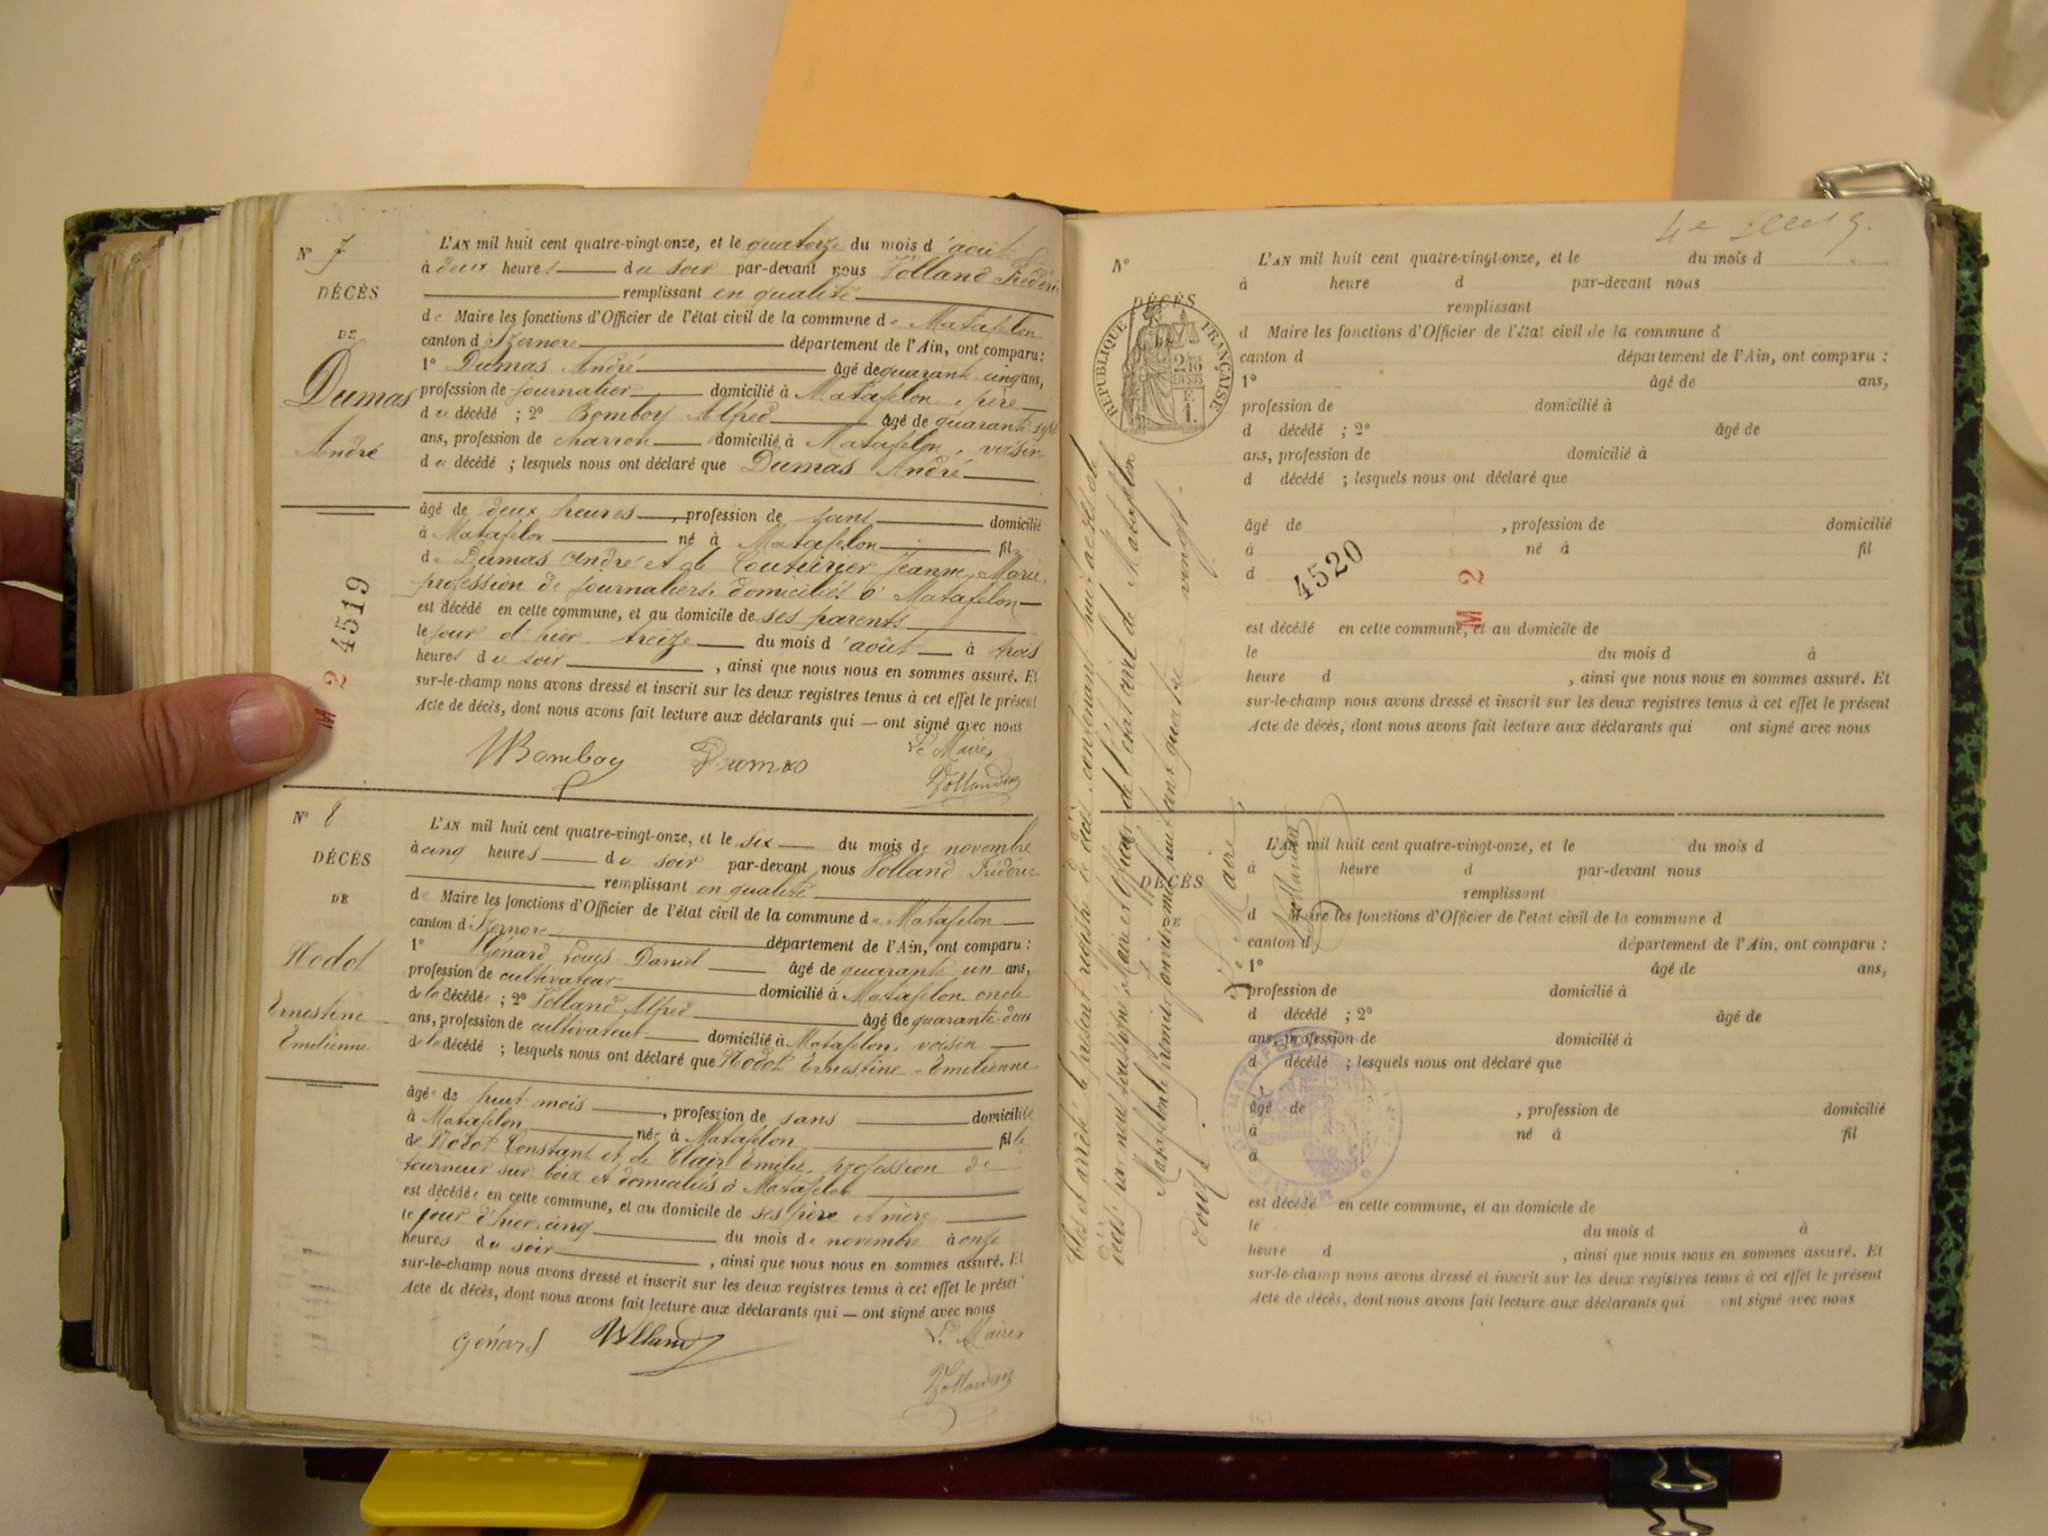 N° 7
DÉCÈS
DE
Dumas
André
M 2 4519
L'AN mil huit cent quatre-vingt-onze, et le quatorze du mois d'août
à deux heures du soir par-devant nous Volland Frédéric
remplissant en qualité
de Maire les fonctions d'Officier de l'état civil de la commune de Matafelon
canton d'Izernore département de l'Ain, ont comparu :
1° Dumas André âgé de quarante cinq ans,
profession de journalier domicilié à Matafelon, père
du décédé ; 2° Bomboy Alfred âgé de quarante sept
ans, profession de charron domicilié à Matafelon, voisin
du décédé ; lesquels nous ont déclaré que Dumas André
âgé de deux heures, profession de sans domicilié
à Matafelon né à Matafelon fils
de Dumas André et de Couturier Jeanne Marie
profession de journaliers domiciliés à Matafelon
est décédé en cette commune, et au domicile de ses parents
le jour d'hier treize du mois d'août à trois
heures du soir, ainsi que nous nous en sommes assuré. Et
sur-le-champ nous avons dressé et inscrit sur les deux registres tenus à cet effet le présent
Acte de décès, dont nous avons fait lecture aux déclarants qui — ont signé avec nous
Bomboy Dumas Le Maire
Volland
N° 8
DÉCÈS
DE
Nodot
Ernestine
Emélienne
L'AN mil huit cent quatre-vingt-onze, et le six du mois de novembre
à cinq heures du soir par-devant nous Volland Frédéric
remplissant en qualité
de Maire les fonctions d'Officier de l'état civil de la commune de Matafelon
canton d'Izernore département de l'Ain, ont comparu :
1° Génard Louis Daniel âgé de quarante un ans,
profession de cultivateur domicilié à Matafelon oncle
de la décédée ; 2° Volland Alfred âgé de quarante deux
ans, profession de cultivateur domicilié à Matafelon, voisin
de la décédé ; lesquels nous ont déclaré que Nodot Ernestine Emélienne
âgée de huit mois, profession de sans domiciliée
à Matafelon née à Matafelon fille
de Nodot Constant et de Clair Emilie, profession de
tourneur sur bois et domiciliés à Matafelon
est décédée en cette commune, et au domicile de ses père et mère
le jour d'hier cinq du mois de novembre à onze
heures du soir, ainsi que nous nous en sommes assuré. Et
sur-le-champ nous avons dressé et inscrit sur les deux registres tenus à cet effet le présent
Acte de décès, dont nous avons fait lecture aux déclarants qui — ont signé avec nous
Génard Volland Le Maire
Volland
4e
N°
DÉCÈS
RÉPUBLIQUE FRANÇAISE
L'AN mil huit cent quatre-vingt-onze, et le du mois d
à heure d par-devant nous
remplissant
d Maire les fonctions d'Officier de l'état civil de la commune d
canton d département de l'Ain, ont comparu :
1° âgé de ans,
profession de domicilié à
d décédé ; 2° âgé de
ans, profession de domicilié à
d décédé ; lesquels nous ont déclaré que
âgé de , profession de domicilié
à né à fil
d
4520
M 2
est décédé en cette commune, et au domicile de
le du mois d à
heure d , ainsi que nous nous en sommes assuré. Et
sur-le-champ nous avons dressé et inscrit sur les deux registres tenus à cet effet le présent
Acte de décès, dont nous avons fait lecture aux déclarants qui ont signé avec nous
Clos et arrêté le présent registre de décès contenant huit actes de
décès, par nous soussigné, Maire et Officier de l'état civil de Matafelon
Matafelon le premier janvier mil huit cent quatre vingt
douze.
Le Maire,
Volland
DÉCÈS
DE
L'AN mil huit cent quatre-vingt-onze, et le du mois d
à heure d par-devant nous
remplissant
d Maire les fonctions d'Officier de l'état civil de la commune d
canton d département de l'Ain, ont comparu :
1° âgé de ans,
profession de domicilié à
d décédé ; 2° âgé de
ans, profession de domicilié à
d décédé ; lesquels nous ont déclaré que
âgé de , profession de domicilié
à né à fil
d
est décédé en cette commune, et au domicile de
le du mois d à
heure d , ainsi que nous nous en sommes assuré. Et
sur-le-champ nous avons dressé et inscrit sur les deux registres tenus à cet effet le présent
Acte de décès, dont nous avons fait lecture aux déclarants qui ont signé avec nous